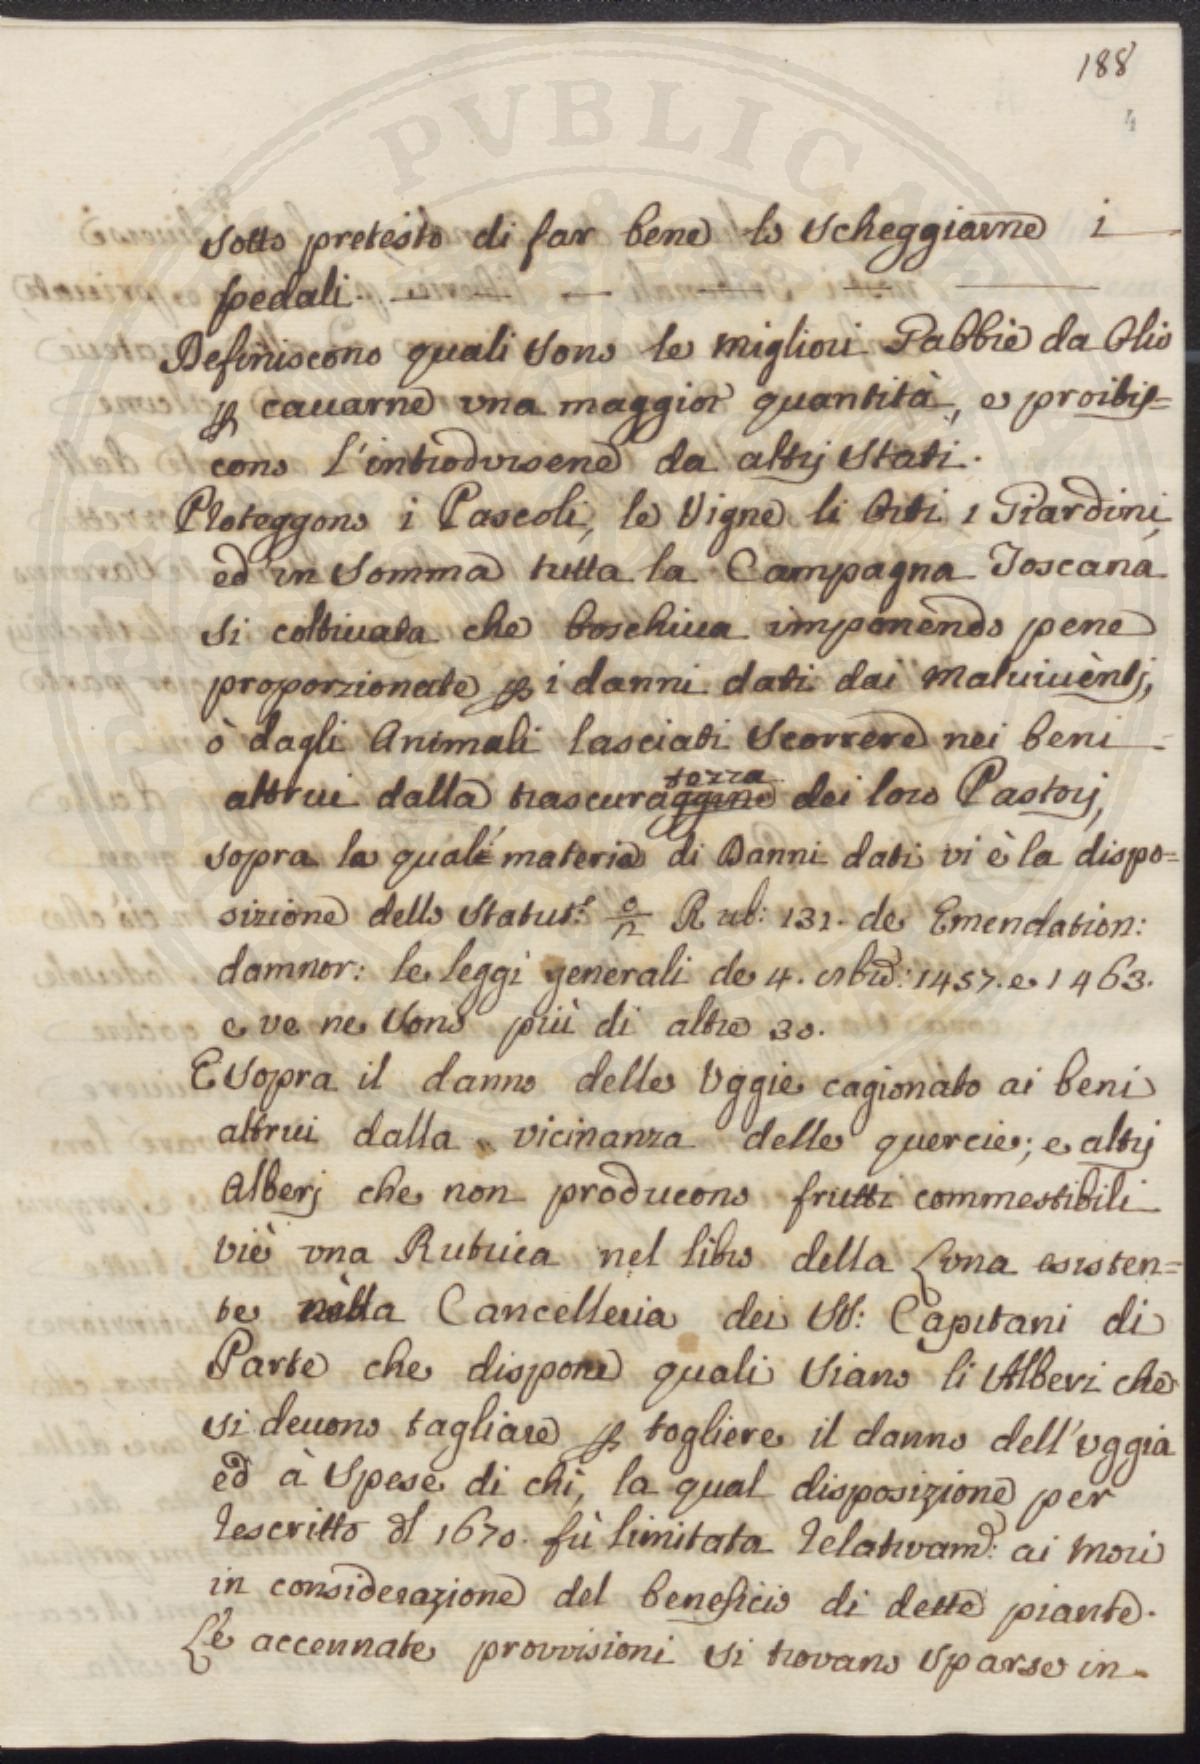 188
4
sotto pretesto di far bene lo scheggiarne i
pedali.
Definiscono quali sono le migliori Gabbie da Olio
ꝑ cauarne vna maggior quantità, e proibis=
cono l'introdursene da altrj Stati.
Proteggono i Pascoli, le Vigne li Orti i Giardini,
ed in somma tutta la Campagna Toscana
si coltiuata che boschiua imponendo pene
proporzionate ꝑ i danni dati dai maluiuèntj,
ò dagli Animali lasciati scorrere nei beni
altrui dalla trascuraggine tezza dei loro Pastorj,
sopra la qual materia di Danni dati vi è la dispo=
sizione dello Statut: Rub: 131. de Emendation:
damnor: le leggi generali de 4. 1457. e 1463.
e ve ne sono più di altre 30.
E sopra il danno delle Vggie cagionato ai beni
altrui dalla vicinanza delle quercie; e altrj
Alberj che non producono frutti commestibili
viè vna Rubrica nel libro della Luna esisten=
te nella Cancelleria dei SS: Capitani di
Parte che dispone quali siano li Alberi che
si deuono tagliare ꝑ togliere il danno dell'vggia
ed à spese di chi, la qual disposizione per
rescritto dl 1670. fù limitata relativam: ai mori
in considerazione del beneficio di dette piante.
Le accennate provvisioni si trovano sparse in